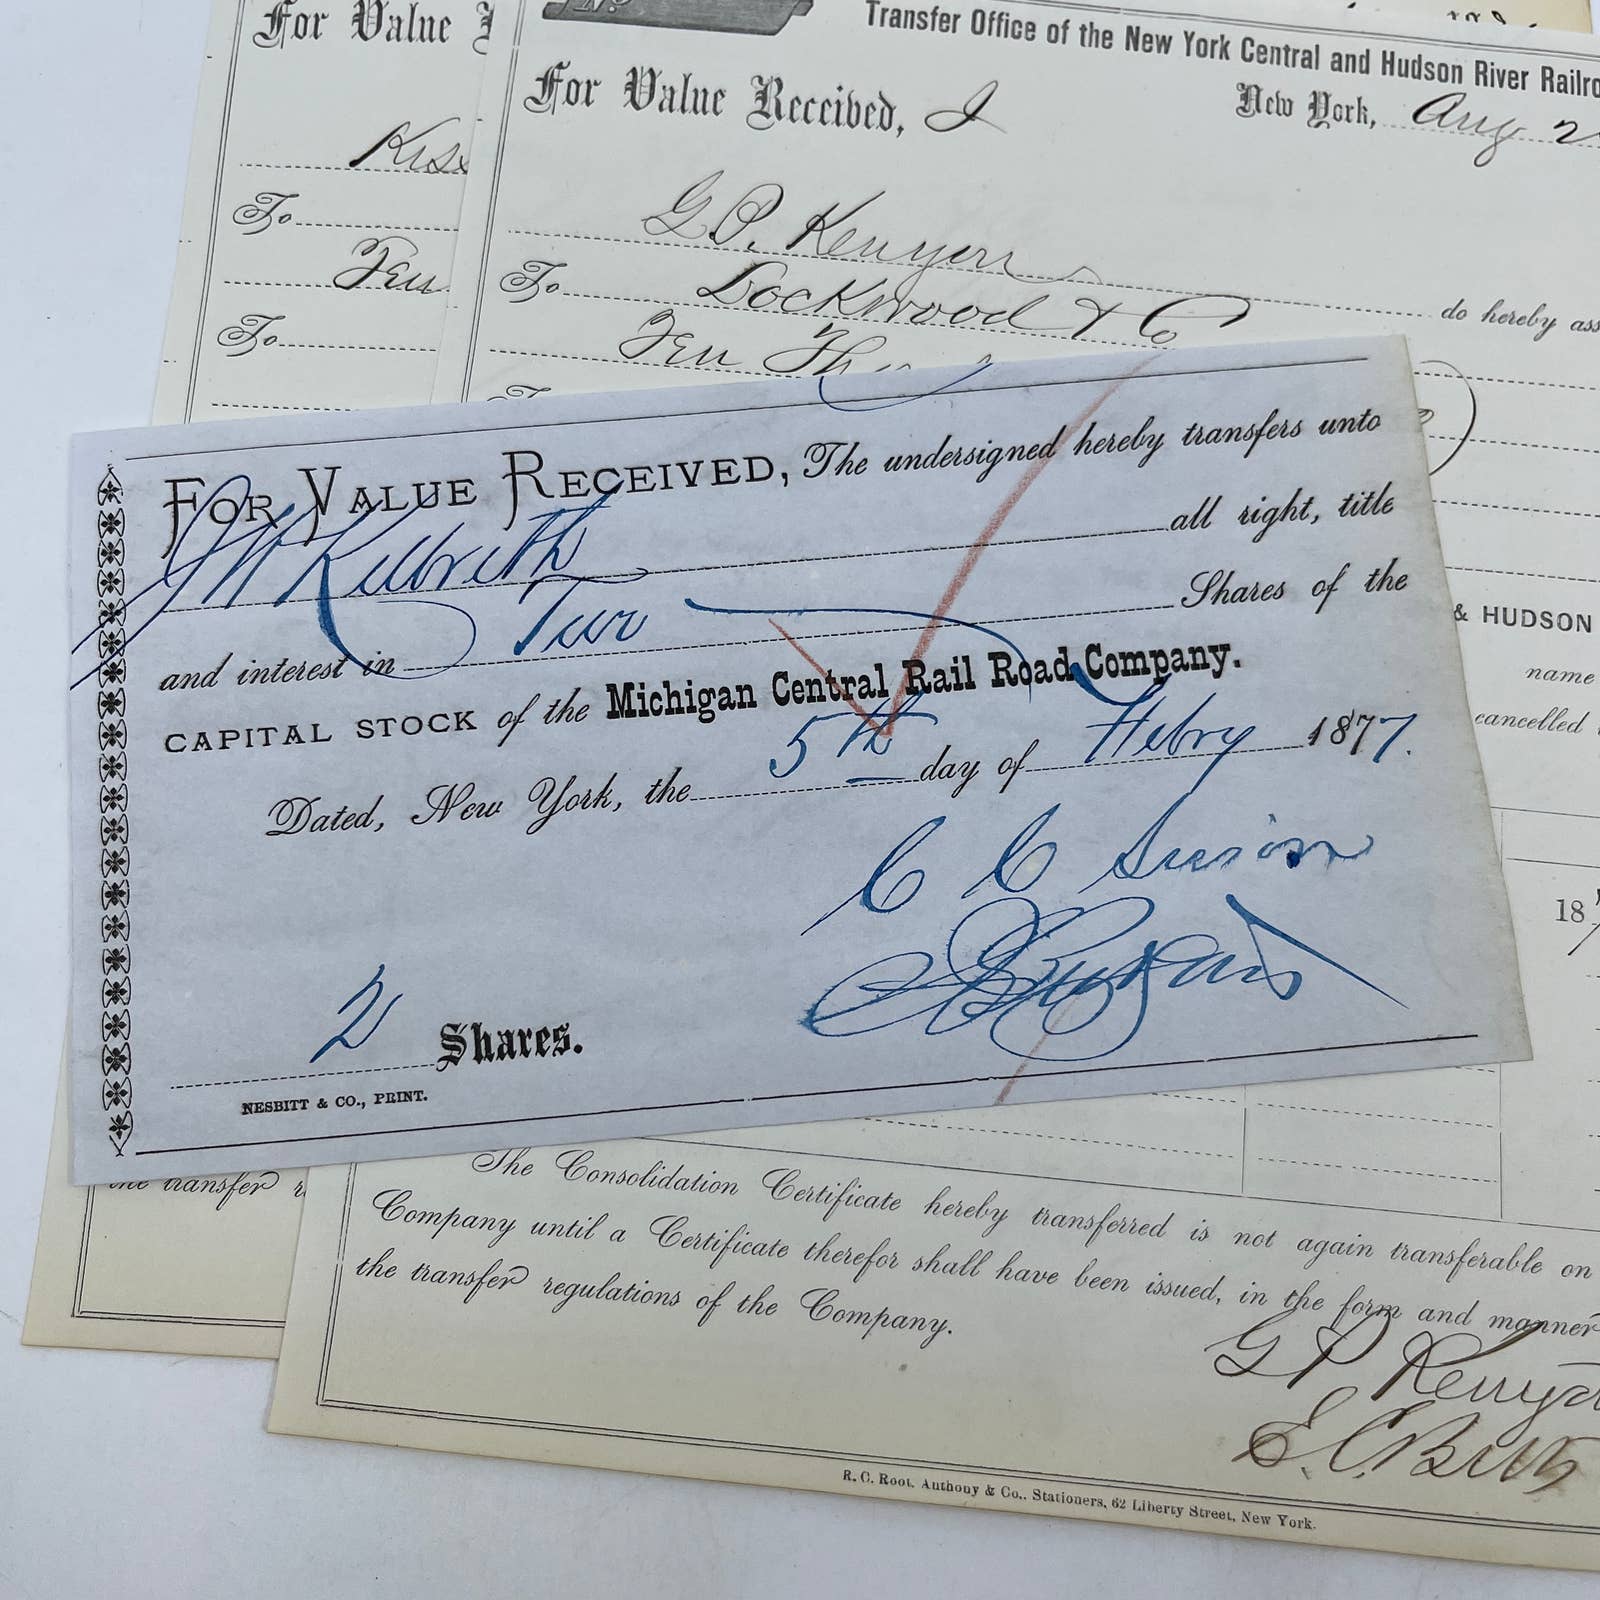 For Value
To
To
Transfer Office of the New York Central and Hudson River
For Value Received, I
New York, Aug
G P. Kenyon
do hereby
To Lockwood & Co
Ten
FOR VALUE RECEIVED, The undersigned hereby transfers unto
all right, title
and interest in Two Shares of the
CAPITAL STOCK of the Michigan Central Rail Road Company.
Dated, New York, the 5th day of Febry 1877.
C C
2 Shares.
NESBITT & CO., PRINT.
& HUDSON
name
cancelled
18
the transfer
The Consolidation Certificate hereby transferred is not again transferable on
Company until a Certificate therefor shall have been issued, in the form and manner
the transfer regulations of the Company.
G P Kenyon
R. C. Root, Anthony & Co., Stationers, 62 Liberty Street, New York.